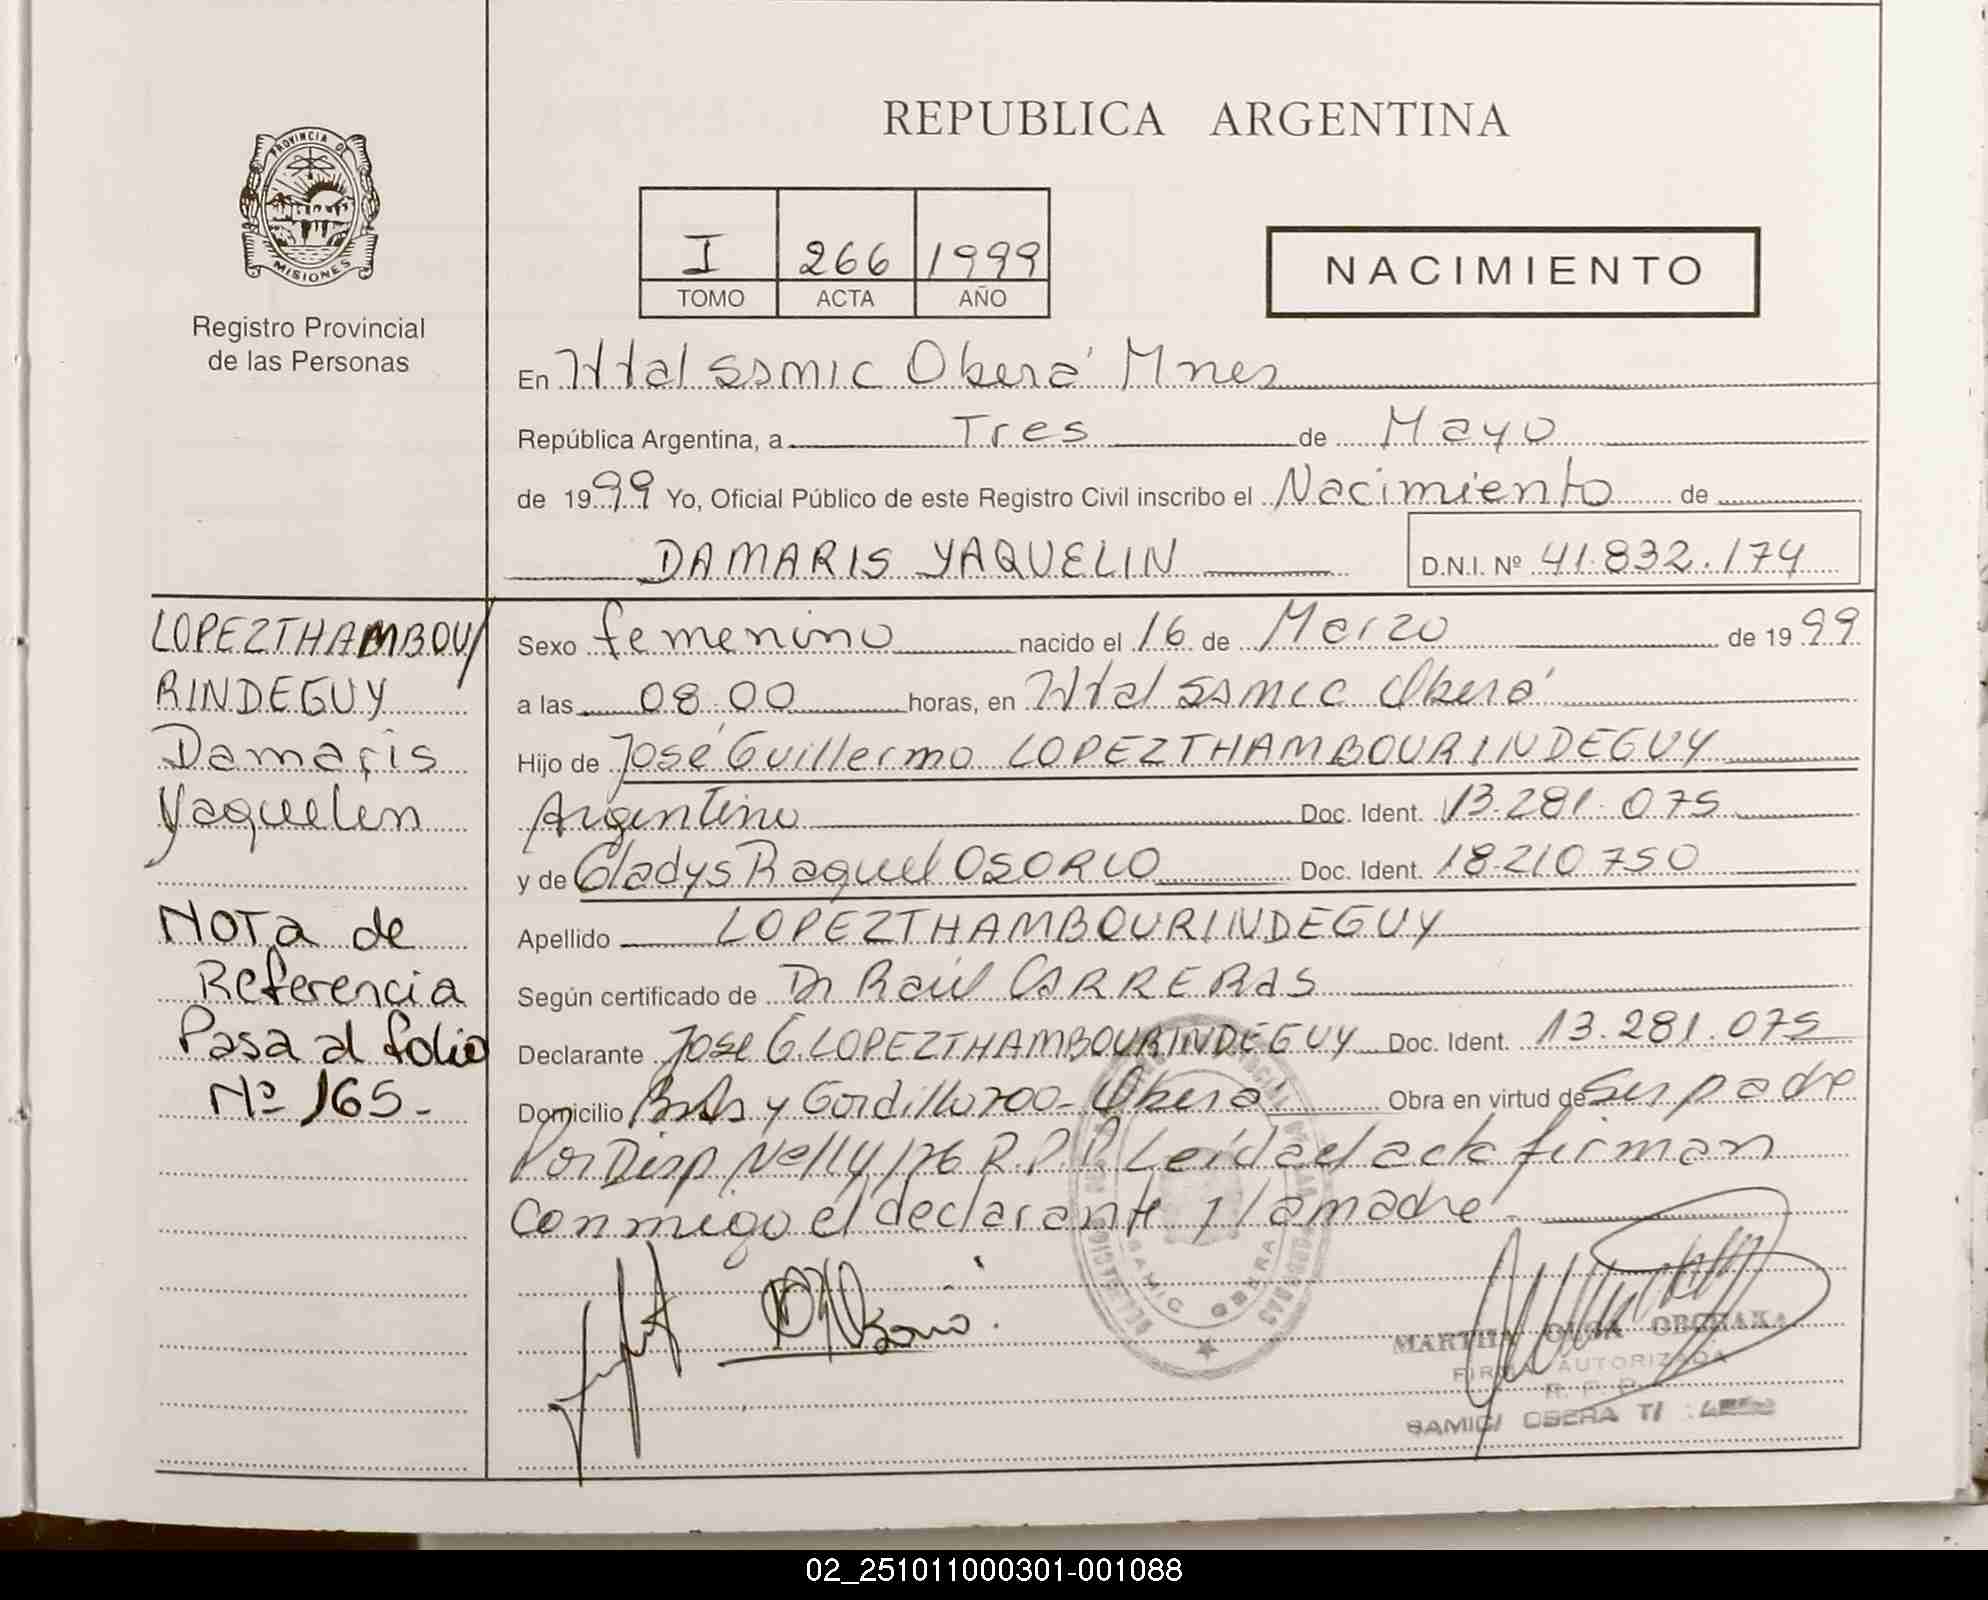 REPUBLICA ARGENTINA
PROVINCIA DE
MISIONES
Registro Provincial
de las Personas
I 266 1999
TOMO ACTA AÑO
NACIMIENTO
En Htal SSMIC Oberá Mnes
República Argentina, a Tres de Mayo
de 1999 Yo, Oficial Público de este Registro Civil inscribo el Nacimiento de
DAMARIS YAQUELIN D.N.I. Nº 41.832.174
LOPEZTHAMBOU/
RINDEGUY
Damaris
Yaquelin
Nota de
Referencia
Pasa al folio
Nº 165-
Sexo femenino nacido el 16 de Marzo de 1999
a las 08:00 horas, en Htal SSMIC Oberá
Hijo de José Guillermo LOPEZTHAMBOURINDEGUY
Argentino Doc. Ident. 13.281.075
y de Gladys Raquel OSORIO Doc. Ident. 18.210.750
Apellido LOPEZTHAMBOURINDEGUY
Según certificado de Dr Raúl CARRERAS
Declarante José G LOPEZTHAMBOURINDEGUY Doc. Ident. 13.281.075
Domicilio y Gordillo 700- Oberá Obra en virtud de Ser padre
Por Disp Nº 114/96 R.P.P. Leída el acta firman
conmigo el declarante y la madre
SAMIC OBERA
MARTHA OLGA
FIRMA AUTORIZADA
R.P.P.
SAMIC/ OBERA
02_251011000301-001088